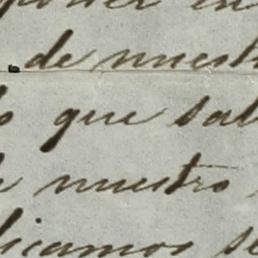 de nuest
que sal
nuestro
icamos se